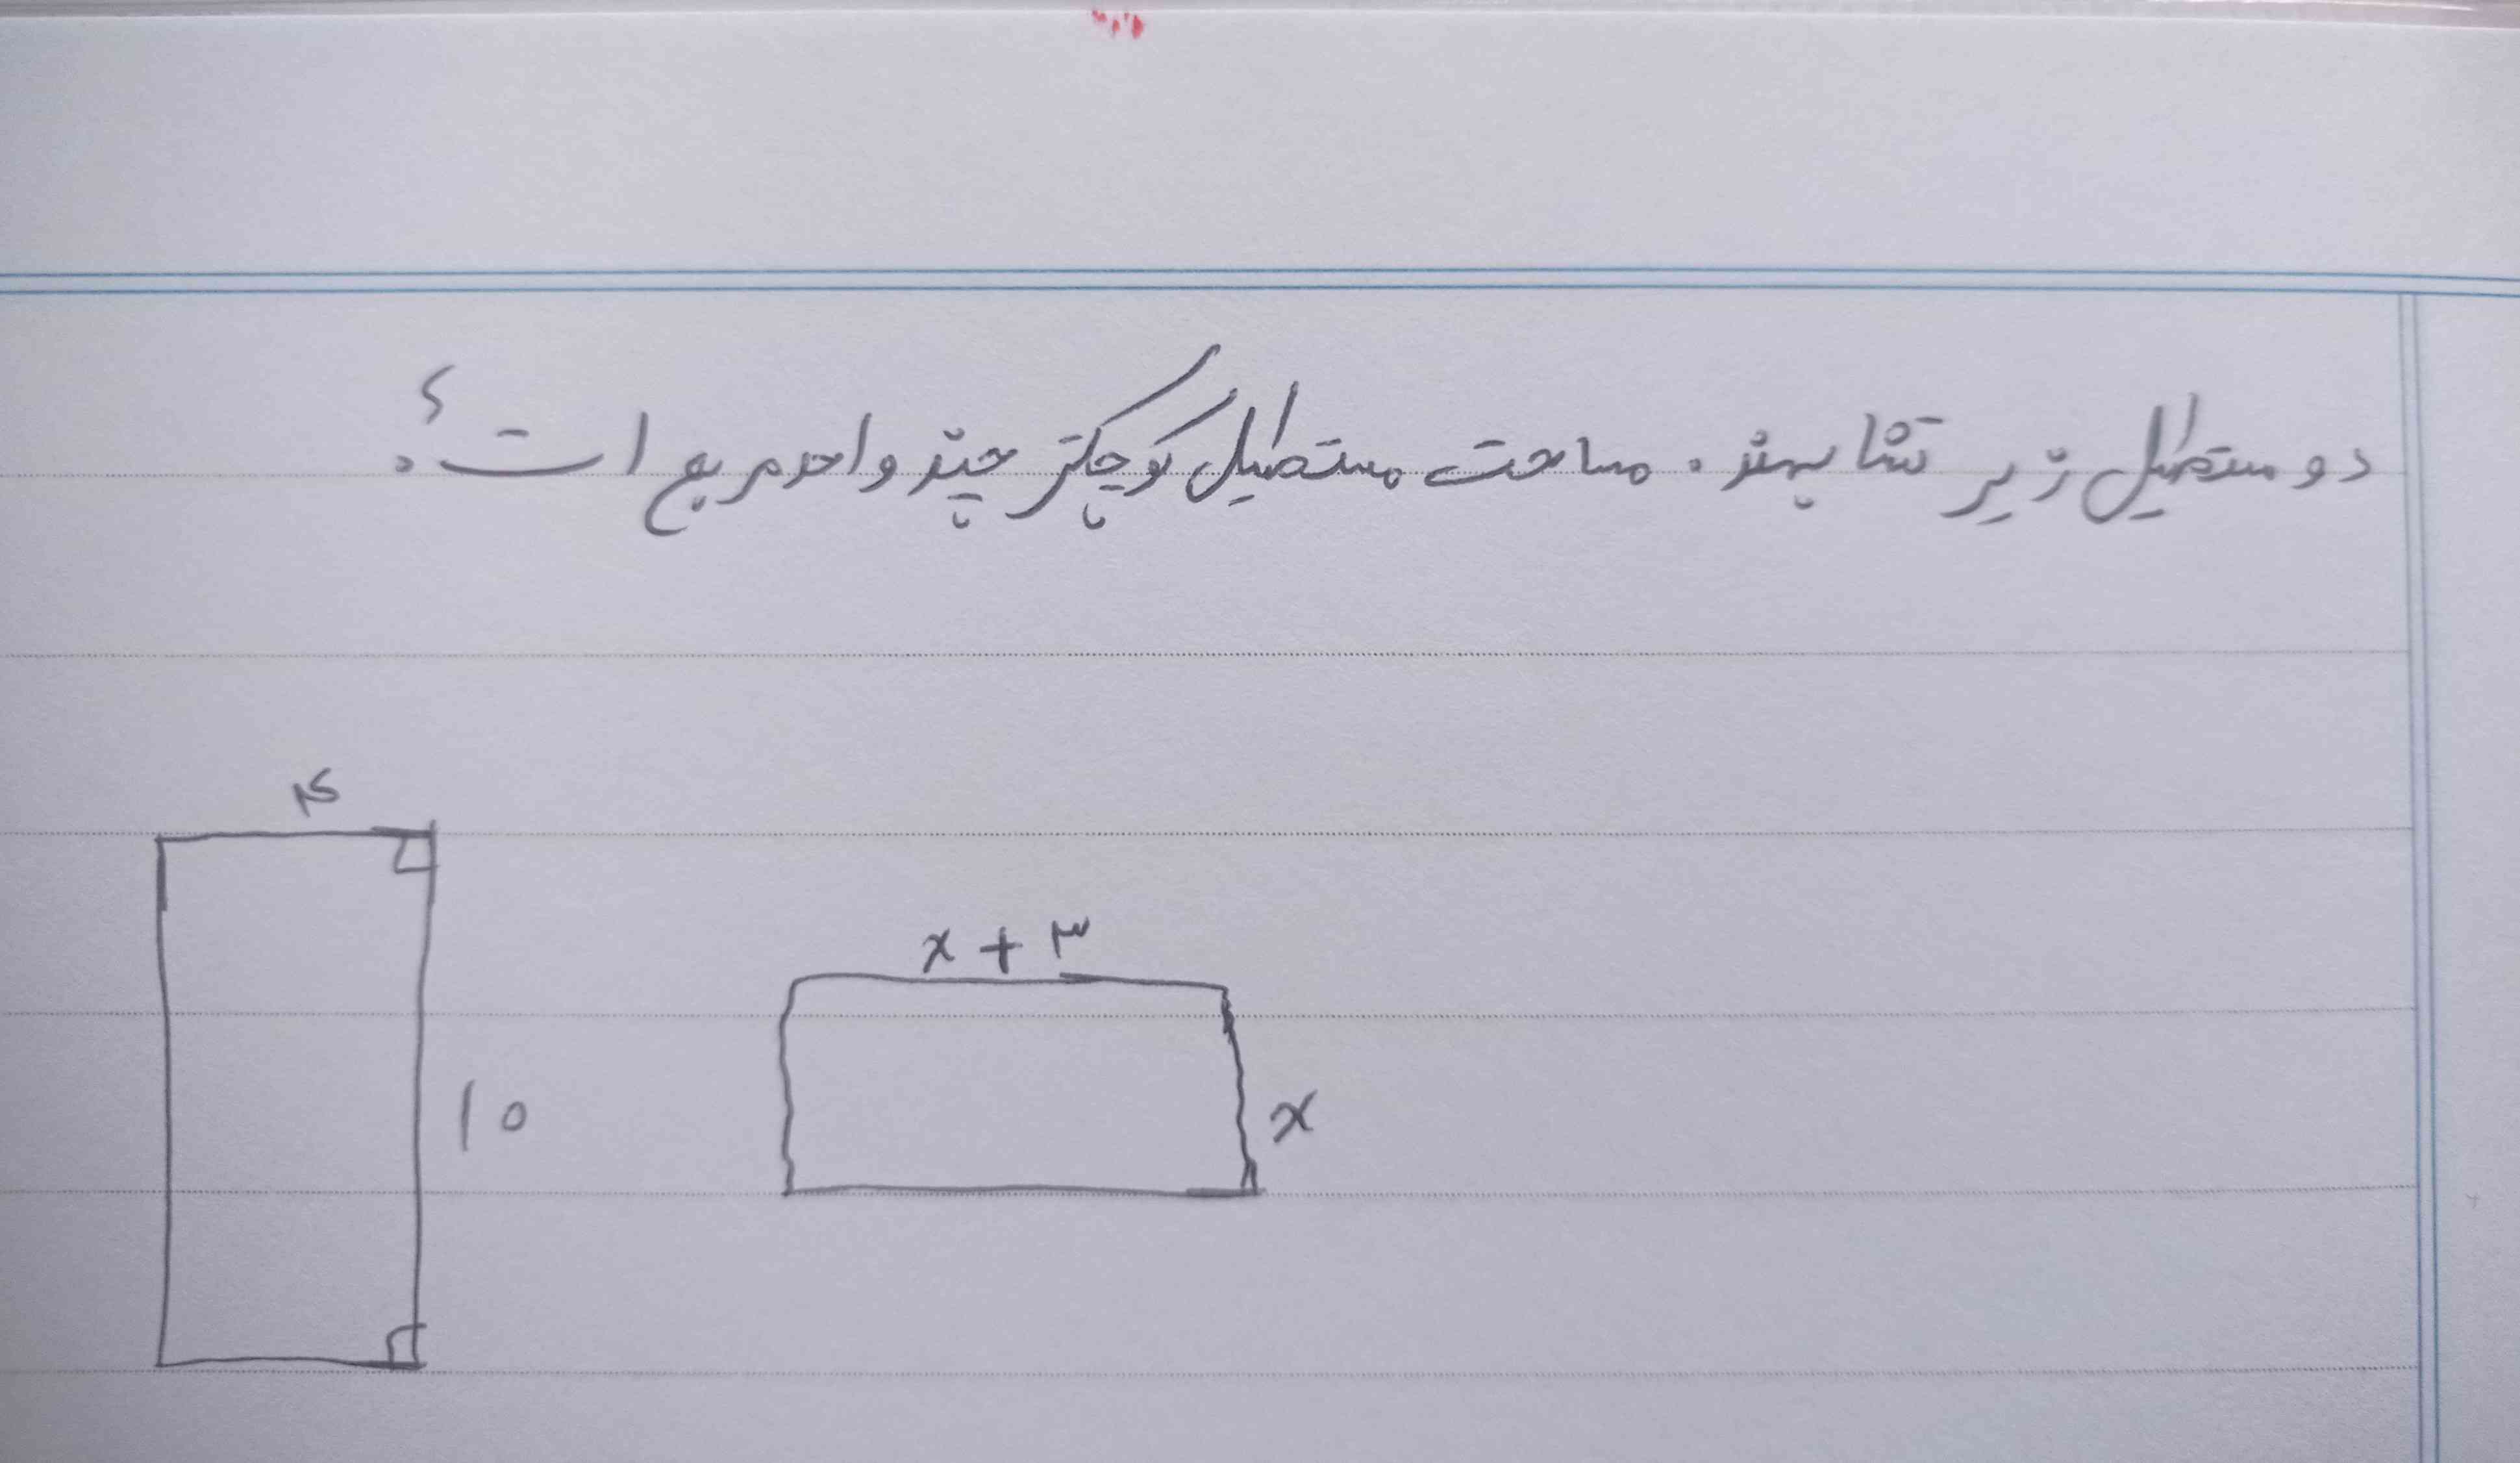 دو مستطیل زیر متشابهند. مساحت مستطیل کوچکتر چند واحد مربع است؟
۴
x + ۳
۱۰
x